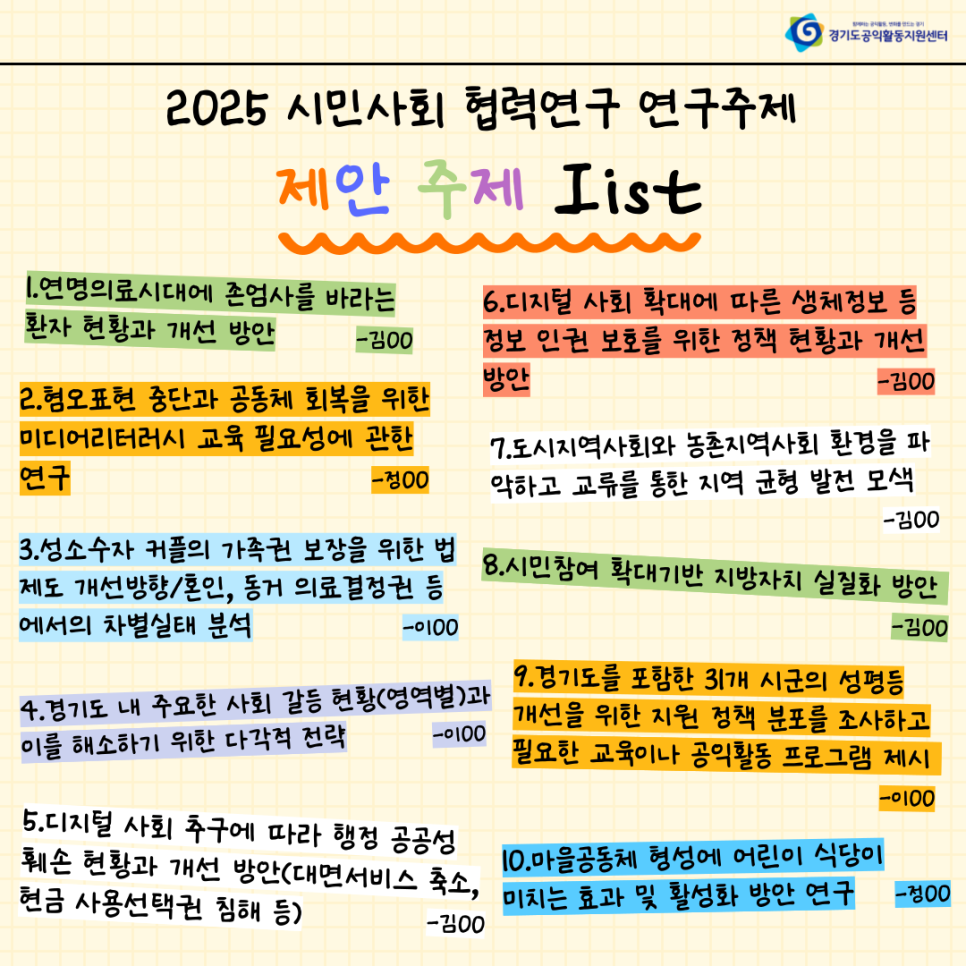 함께하는 공익활동, 변화를 만드는 경기
경기도공익활동지원센터
2025 시민사회 협력연구 연구주제
제안 주제 list
1.연명의료시대에 존엄사를 바라는
환자 현황과 개선 방안
-김00
2.혐오표현 중단과 공동체 회복을 위한
미디어리터러시 교육 필요성에 관한
연구
-정00
3.성소수자 커플의 가족권 보장을 위한 법
제도 개선방향/혼인, 동거 의료결정권 등
에서의 차별실태 분석
-이00
4.경기도 내 주요한 사회 갈등 현황(영역별)과
이를 해소하기 위한 다각적 전략
-이00
5.디지털 사회 추구에 따라 행정 공공성
훼손 현황과 개선 방안(대면서비스 축소,
현금 사용선택권 침해 등)
-김00
6.디지털 사회 확대에 따른 생체정보 등
정보 인권 보호를 위한 정책 현황과 개선
방안
-김00
7.도시지역사회와 농촌지역사회 환경을 파
악하고 교류를 통한 지역 균형 발전 모색
-김00
8.시민참여 확대기반 지방자치 실질화 방안
-김00
9.경기도를 포함한 31개 시군의 성평등
개선을 위한 지원 정책 분포를 조사하고
필요한 교육이나 공익활동 프로그램 제시
-이00
10.마을공동체 형성에 어린이 식당이
미치는 효과 및 활성화 방안 연구
-정00